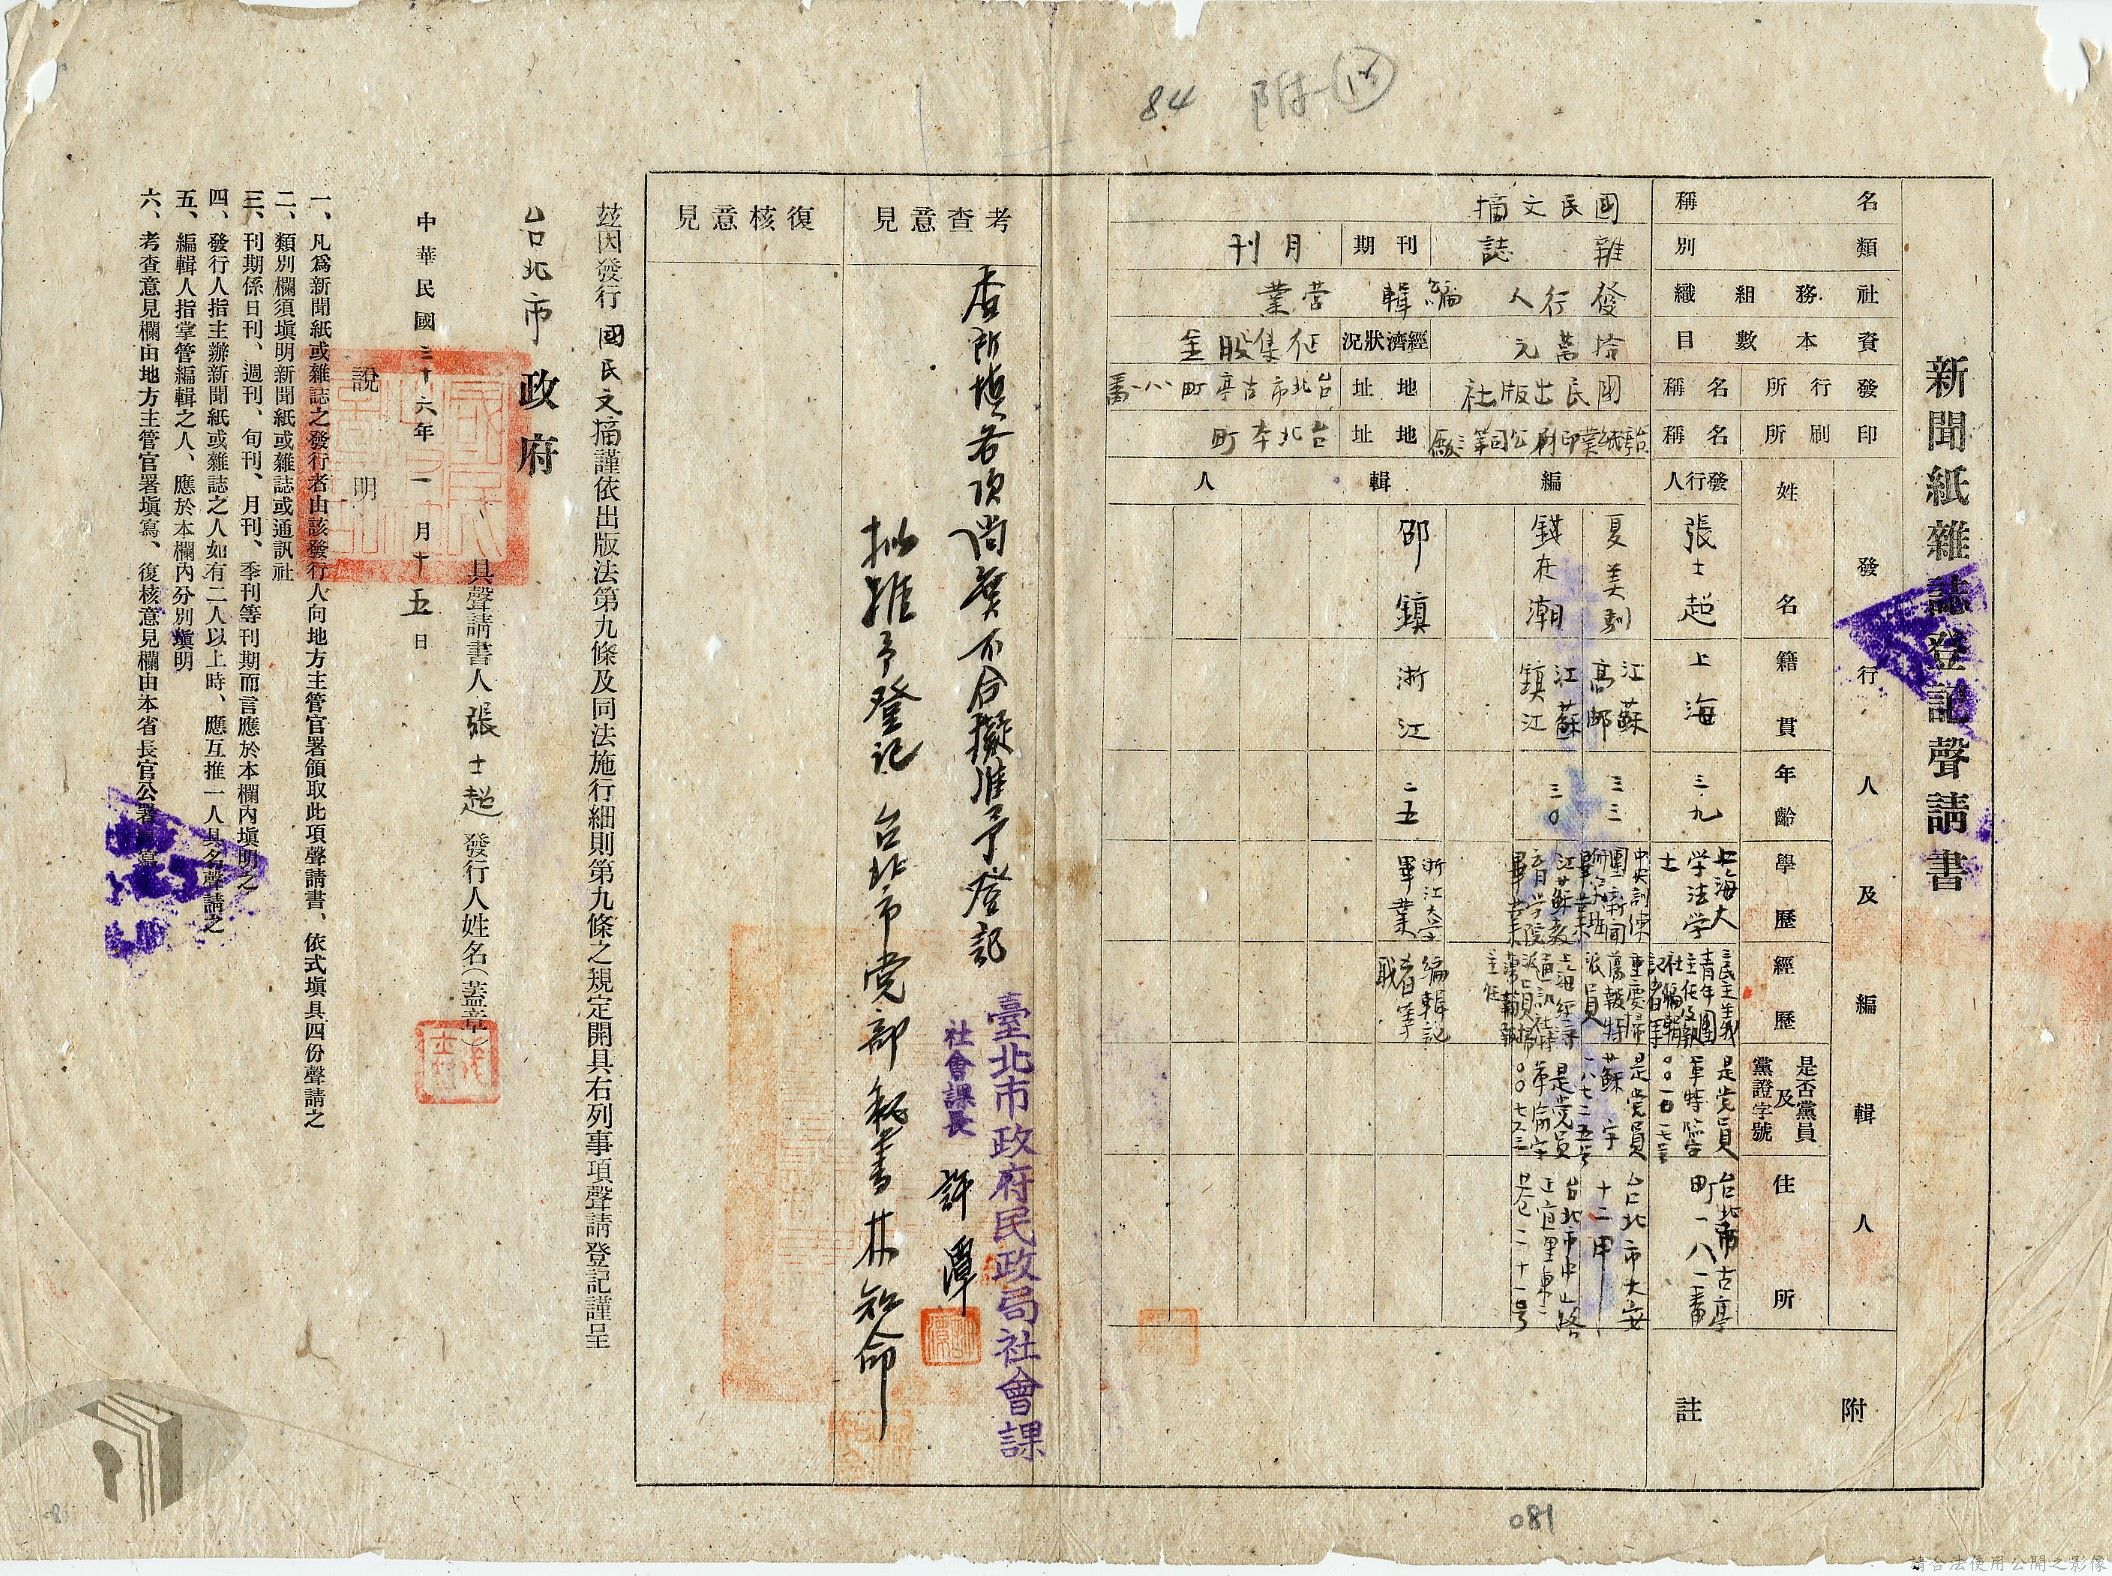 84 附
新聞紙雜誌登記聲請書
名稱 國民文摘
類別 雜誌 刊期 月刊
社務組織 發行人 編輯 營業
資本數目 拾萬元 經濟狀況 征集股金
發行所名稱 國民出版社 地址 台北市古亭町一八一番
印刷所名稱 台灣紙業印刷公司第三廠 地址 台北市本町
發行人及編輯人
姓名 籍貫 年齡 學歷 經歷 是否黨員及黨證字號 住所
發行人 張士超 上海 三九 上海大學法学士 三民主義青年團主任及報社編輯記者等 是党員軍特字 台北市古亭町一八一番
編輯人
夏美馴 江蘇高郵 三三 中央訓練團新聞研究班畢業 重慶掃蕩報特派員 是党員蘇字一八七二五号 台北市大安十二甲
錢在潮 江蘇鎮江 三〇 江蘇教育学院畢業 是党員 台北市中山路正宜里東二巷二十一号
邵鎮 浙江 二五 浙江大学畢業 編輯記者等職
附註
考查意見
查所填各項尚無不合擬准予登記
臺北市政府民政局社會課
社會課長 許潭
拟准予登記 台北市党部秘書林知命
復核意見
茲因發行國民文摘謹依出版法第九條及同法施行細則第九條之規定開具右列事項聲請登記謹呈
台北市政府
具聲請書人張士超 發行人姓名(蓋章)
中華民國三十六年一月十五日
說明
一、凡爲新聞紙或雜誌之發行者由該發行人向地方主管官署領取此項聲請書、依式塡具四份聲請之
二、類別欄須塡明新聞紙或雜誌或通訊社
三、刊期係日刊、週刊、旬刊、月刊、季刊等刊期而言應於本欄內塡明之
四、發行人指主辦新聞紙或雜誌之人如有二人以上時、應互推一人具名聲請之
五、編輯人指掌管編輯之人、應於本欄內分別塡明
六、考查意見欄由地方主管官署塡寫、復核意見欄由本省長官公署塡寫
081
請合法使用公開之影像